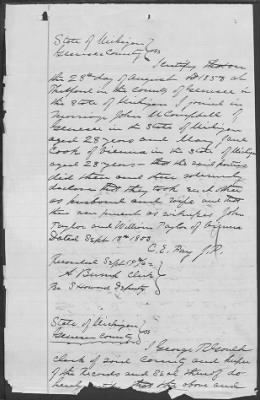 State of Michigan
Genesee County } ss
I certify that on
the 28th day of August AD 1853 at
Thetford in the County of Genesee in
the State of Michigan I joined in
Marriage John McCampbell of
Genesee in the State of Michigan
aged 28 years and Mary Jane
Cook of in the State of Michigan
aged 23 years - that the said parties
did then and there solemnly
declare that they took each other
as husband and wife and that
there was present as witnesses John
Taylor and William Taylor of
Dated Sept 19th 1853
C. E. Ray J.P.
Recorded Sept 19th
A Clerk
Deputy
State of Michigan
Genesee County } ss
I George R Gould
clerk of said County and keeper
of the records and Seal thereof do
hereby that the above and